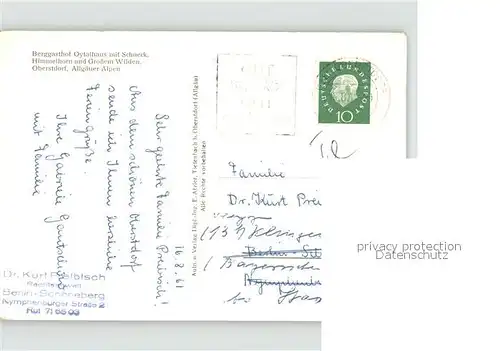 Berggasthof Oytalhaus mit Schneck,
Himmelhorn und Großem Wilden,
Oberstdorf, Allgäuer-Alpen
DEUTSCHE BUNDESPOST
10
16.8.61
Sehr geehrte Familie Preibisch!
Aus dem schönen Oberstdorf
sende ich Ihnen herzliche
Feriengrüße.
Ihre Gabriele
mit Familie
Aufn. u. Verlag Dipl.-Ing. E. Tiefenbach b. Oberstdorf (Allgäu)
Alle Rechte vorbehalten
Familie
Dr. Kurt Prei
(13
Berlin-
(Bayerische
Nymphenb
bei
Dr. Kurt Preibisch
Rechtsanwalt
Berlin-Schöneberg
Nymphenburger Straße 2
Ruf 71 65 03
privacy protection
Datenschutz